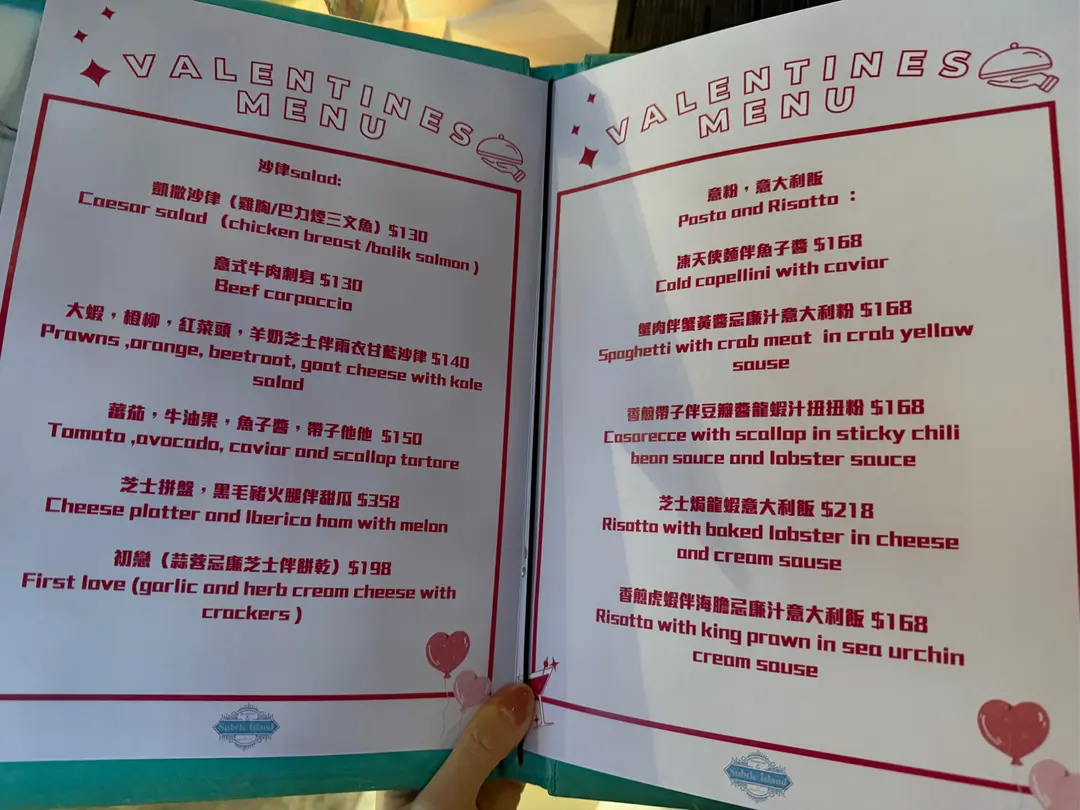 VALENTINES
MENU
沙律salad:
凱撒沙律（雞胸/巴力煙三文魚）$130
Caesar salad （chicken breast /balik salmon )
意式牛肉刺身 $130
Beef carpaccio
大蝦，橙柳，紅菜頭，羊奶芝士伴雨衣甘藍沙律 $140
Prawns ,orange, beetroot, goat cheese with kale
salad
蕃茄，牛油果，魚子醬，帶子他他 $150
Tomato ,avocado, caviar and scallop tartare
芝士拼盤，黑毛豬火腿伴甜瓜 $358
Cheese platter and Iberico ham with melon
初戀（蒜蓉忌廉芝士伴餅乾）$198
First love (garlic and herb cream cheese with
crackers )
Subtle Island
VALENTINES
MENU
意粉，意大利飯
Pasta and Risotto ：
凍天使麵伴魚子醬 $168
Cold capellini with caviar
蟹肉伴蟹黃醬忌廉汁意大利粉 $168
Spaghetti with crab meat in crab yellow
sauce
香煎帶子伴豆瓣醬龍蝦汁扭扭粉 $168
Casarecce with scallop in sticky chili
bean sauce and lobster sauce
芝士焗龍蝦意大利飯 $218
Risotto with baked lobster in cheese
and cream sauce
香煎虎蝦伴海膽忌廉汁意大利飯 $168
Risotto with king prawn in sea urchin
cream sauce
Subtle Island